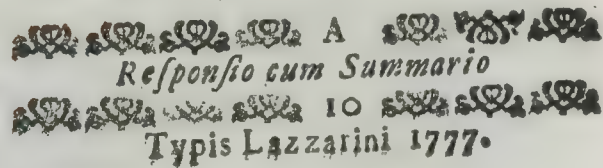 A
Reſponſio cum Summario
10
Typis Lazzarini 1777.